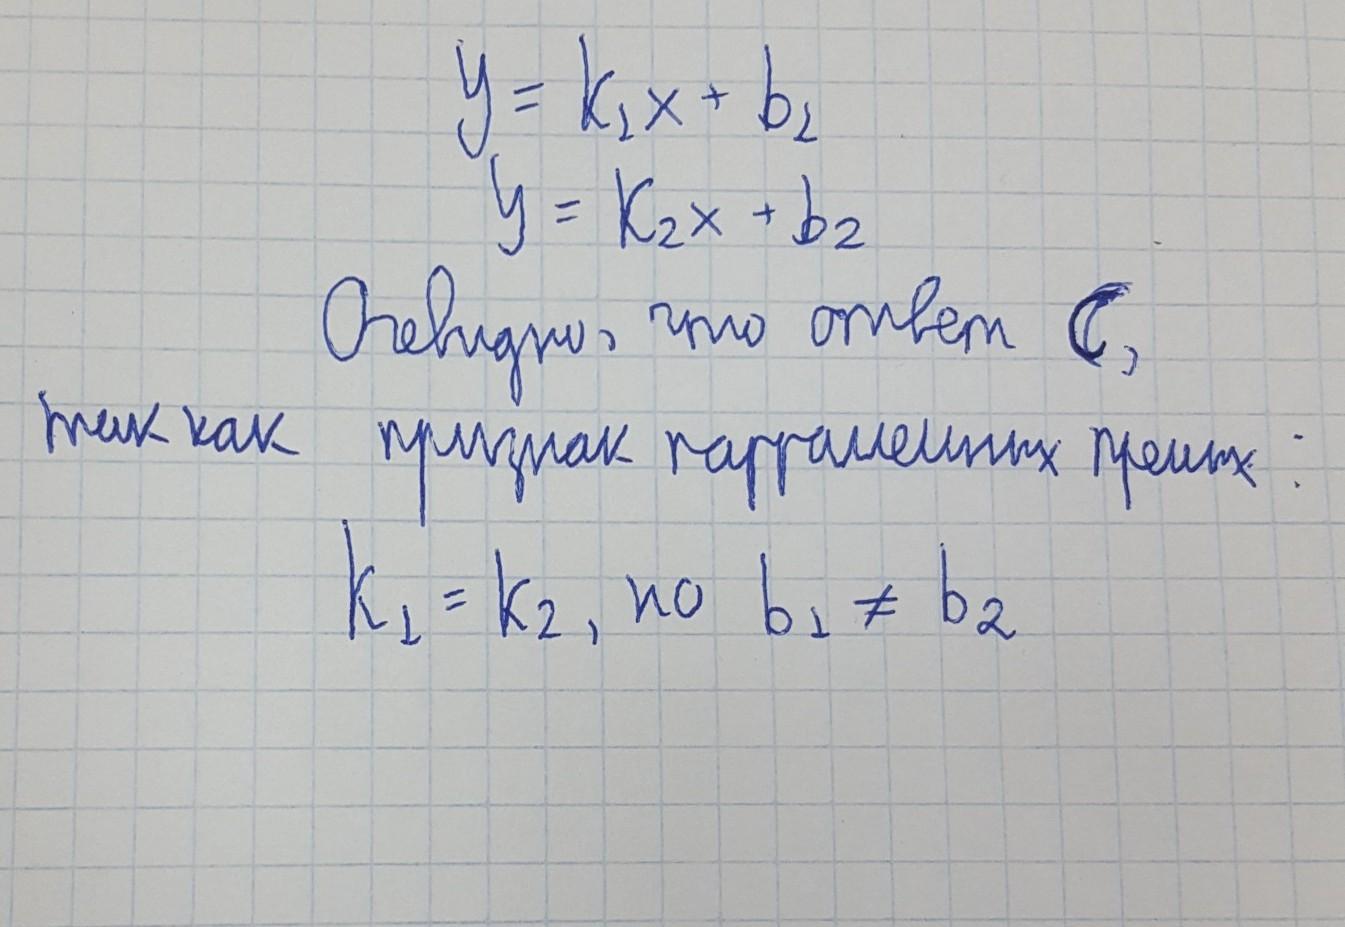 y = k₁x + b₁
y = k₂x + b₂
Очевидно, что ответ C,
так как признак парралельных прямых :
k₁ = k₂, но b₁ ≠ b₂